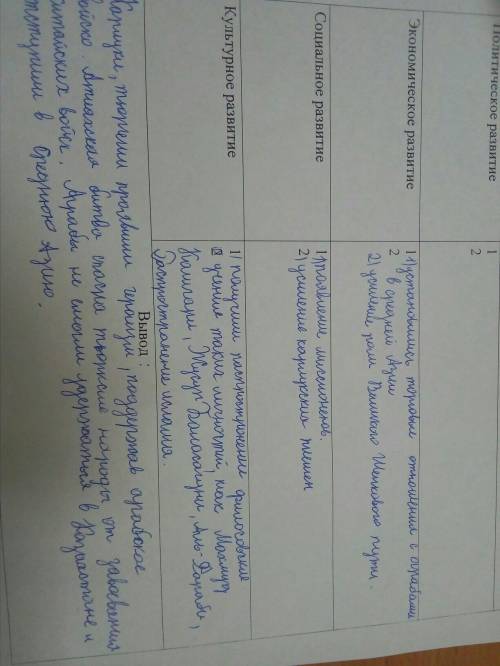 Политическое развитие
1
2
Экономическое развитие
1) установились торговые отношения с арабами
2 в средней Азии
2) усиление роли Великого Шелкового пути.
Социальное развитие
1) появление миссионеров.
2) усиление карлукских племен
Культурное развитие
1) получили распространение философские
учения таких личностей, как Махмуд
Кашгари, Жусуп Баласагуни, Аль-Фараби,
Распространение ислама.
Вывод:
Карлуки, тюргеши проявили героизм, поддержав арабское
войско. Атлахская битва спасла тюркские народы от завоевания
китайских войск. Арабы не смогли удержаться в Казахстане и
отступили в Среднюю Азию.